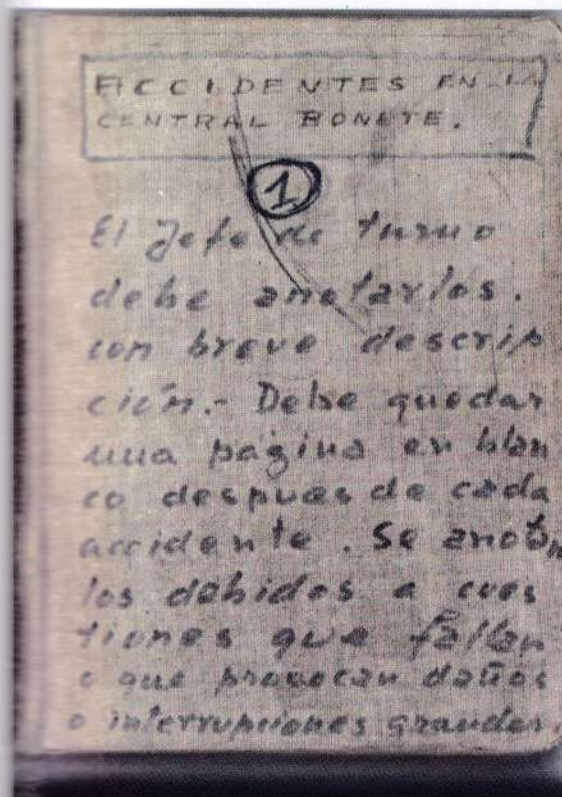 ACCIDENTES EN LA
CENTRAL BONETE.
1
El Jefe de turno
debe anotarlos.
con breve descrip
ción.- Debe quedar
una pagina en blan
co despues de cada
accidente. Se anotan
los debidos a cues
tiones que fallan
o que provocan daños
o interrupciones grandes.